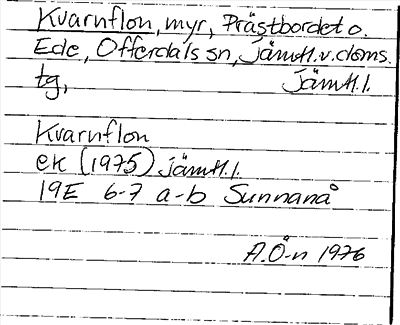 Kvarnflon, myr, Prästbordet o.
Ede, Offerdals sn, Jämtl.v.doms.
tg, Jämtl.l.
Kvarnflon
ek (1975) Jämtl.l.
19E 6-7 a-b Sunnanå
A.Ö-n 1976